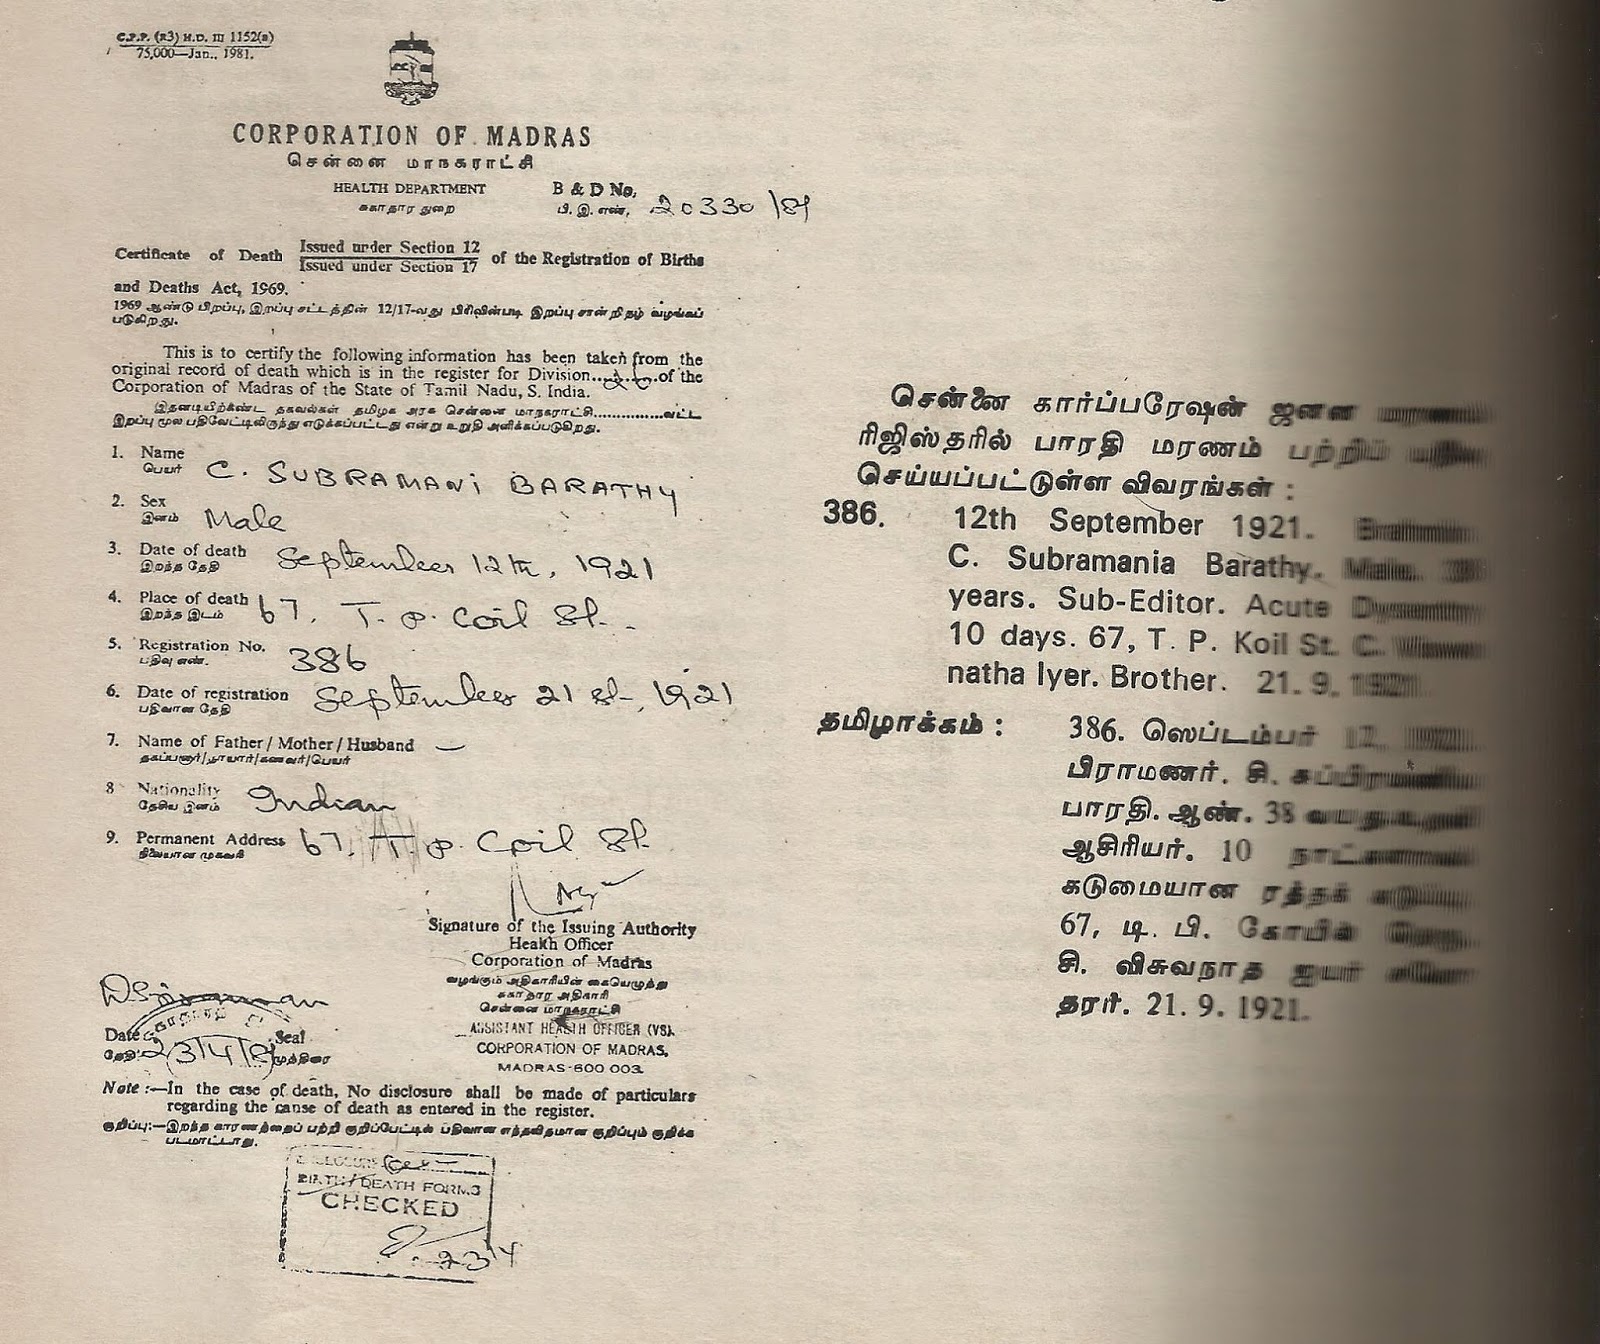 C.P.P. (R3) H.D. III 1152(B)
75,000—Jan., 1981.
CORPORATION OF MADRAS
சென்னை மாநகராட்சி
HEALTH DEPARTMENT
சுகாதார துறை
B & D No.
பி. இ. எண். 20330 /81
Certificate of Death Issued under Section 12
Issued under Section 17 of the Registration of Births
and Deaths Act, 1969.
1969 ஆண்டு பிறப்பு, இறப்பு சட்டத்தின் 12/17-வது பிரிவின்படி இறப்பு சான்றிதழ் வழங்கப்
படுகிறது.
This is to certify the following information has been taken from the
original record of death which is in the register for Division........of the
Corporation of Madras of the State of Tamil Nadu, S. India.
இதனடியிற்கண்ட தகவல்கள் தமிழக அரசு சென்னை மாநகராட்சி..............வட்ட
இறப்பு மூல பதிவேட்டிலிருந்து எடுக்கப்பட்டது என்று உறுதி அளிக்கப்படுகிறது.
1. Name
பெயர் C. SUBRAMANI BARATHY
2. Sex
இனம் Male
3. Date of death
இறந்த தேதி September 12th, 1921
4. Place of death
இறந்த இடம் 67, T. P. Coil St.
5. Registration No.
பதிவு எண். 386
6. Date of registration
பதிவான தேதி September 21st, 1921
7. Name of Father / Mother / Husband —
தகப்பனார்/தாயார்/கணவர்/பெயர்
8 Nationality
தேசிய இனம் Indian
9. Permanent Address
நிலையான முகவரி 67, T. P. Coil St.
Signature of the Issuing Authority
Health Officer
Corporation of Madras
வழங்கும் அதிகாரியின் கையெழுத்து
சுகாதார அதிகாரி
சென்னை மாநகராட்சி
ASSISTANT HEALTH OFFICER (VS).
CORPORATION OF MADRAS,
MADRAS-600 003.
Date Seal
தேதி: 23/4/81 முத்திரை
Note :—In the case of death, No disclosure shall be made of particulars
regarding the cause of death as entered in the register.
குறிப்பு:—இறந்த காரணத்தைப் பற்றி குறிப்பேட்டில் பதிவான எந்தவிதமான குறிப்பும் குறிக்க
படமாட்டாது.
BIRTH/DEATH FORMS
CHECKED
23/4
சென்னை கார்ப்பரேஷன் ஜனன
ரிஜிஸ்தரில் பாரதி மரணம் பற்றிப்
செய்யப்பட்டுள்ள விவரங்கள் :
386. 12th September 1921.
C. Subramania Barathy. Male.
years. Sub-Editor. Acute
10 days. 67, T. P. Koil St. C.
natha Iyer. Brother. 21. 9. 1921
தமிழாக்கம் : 386. ஸெப்டம்பர் 12.
பிராமணர். சி.
பாரதி. ஆண். 38
ஆசிரியர். 10
கடுமையான ரத்தக்
67, டி. பி. கோயில்
சி. விசுவநாத ஐயர்
தரர். 21. 9. 1921.